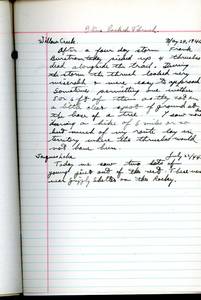 Willow Creek. May 20, 1944
After a four day storm Frank
Burstrom picked up 4 thrushes
dead alongside the trail. During
the storm the thrush looked very
miserable & were easy to approach.
Sometimes permitting one within
5 or 6 ft of them
a little clear spot of ground at
the base of a tree. I saw none
during a hike of 6 miles or so
but much of my route lay in
territory where the thrushes would
not have been.
July 21/44
Today we saw two lots of
young just out of the nest. These near
shelter on the Rocky.